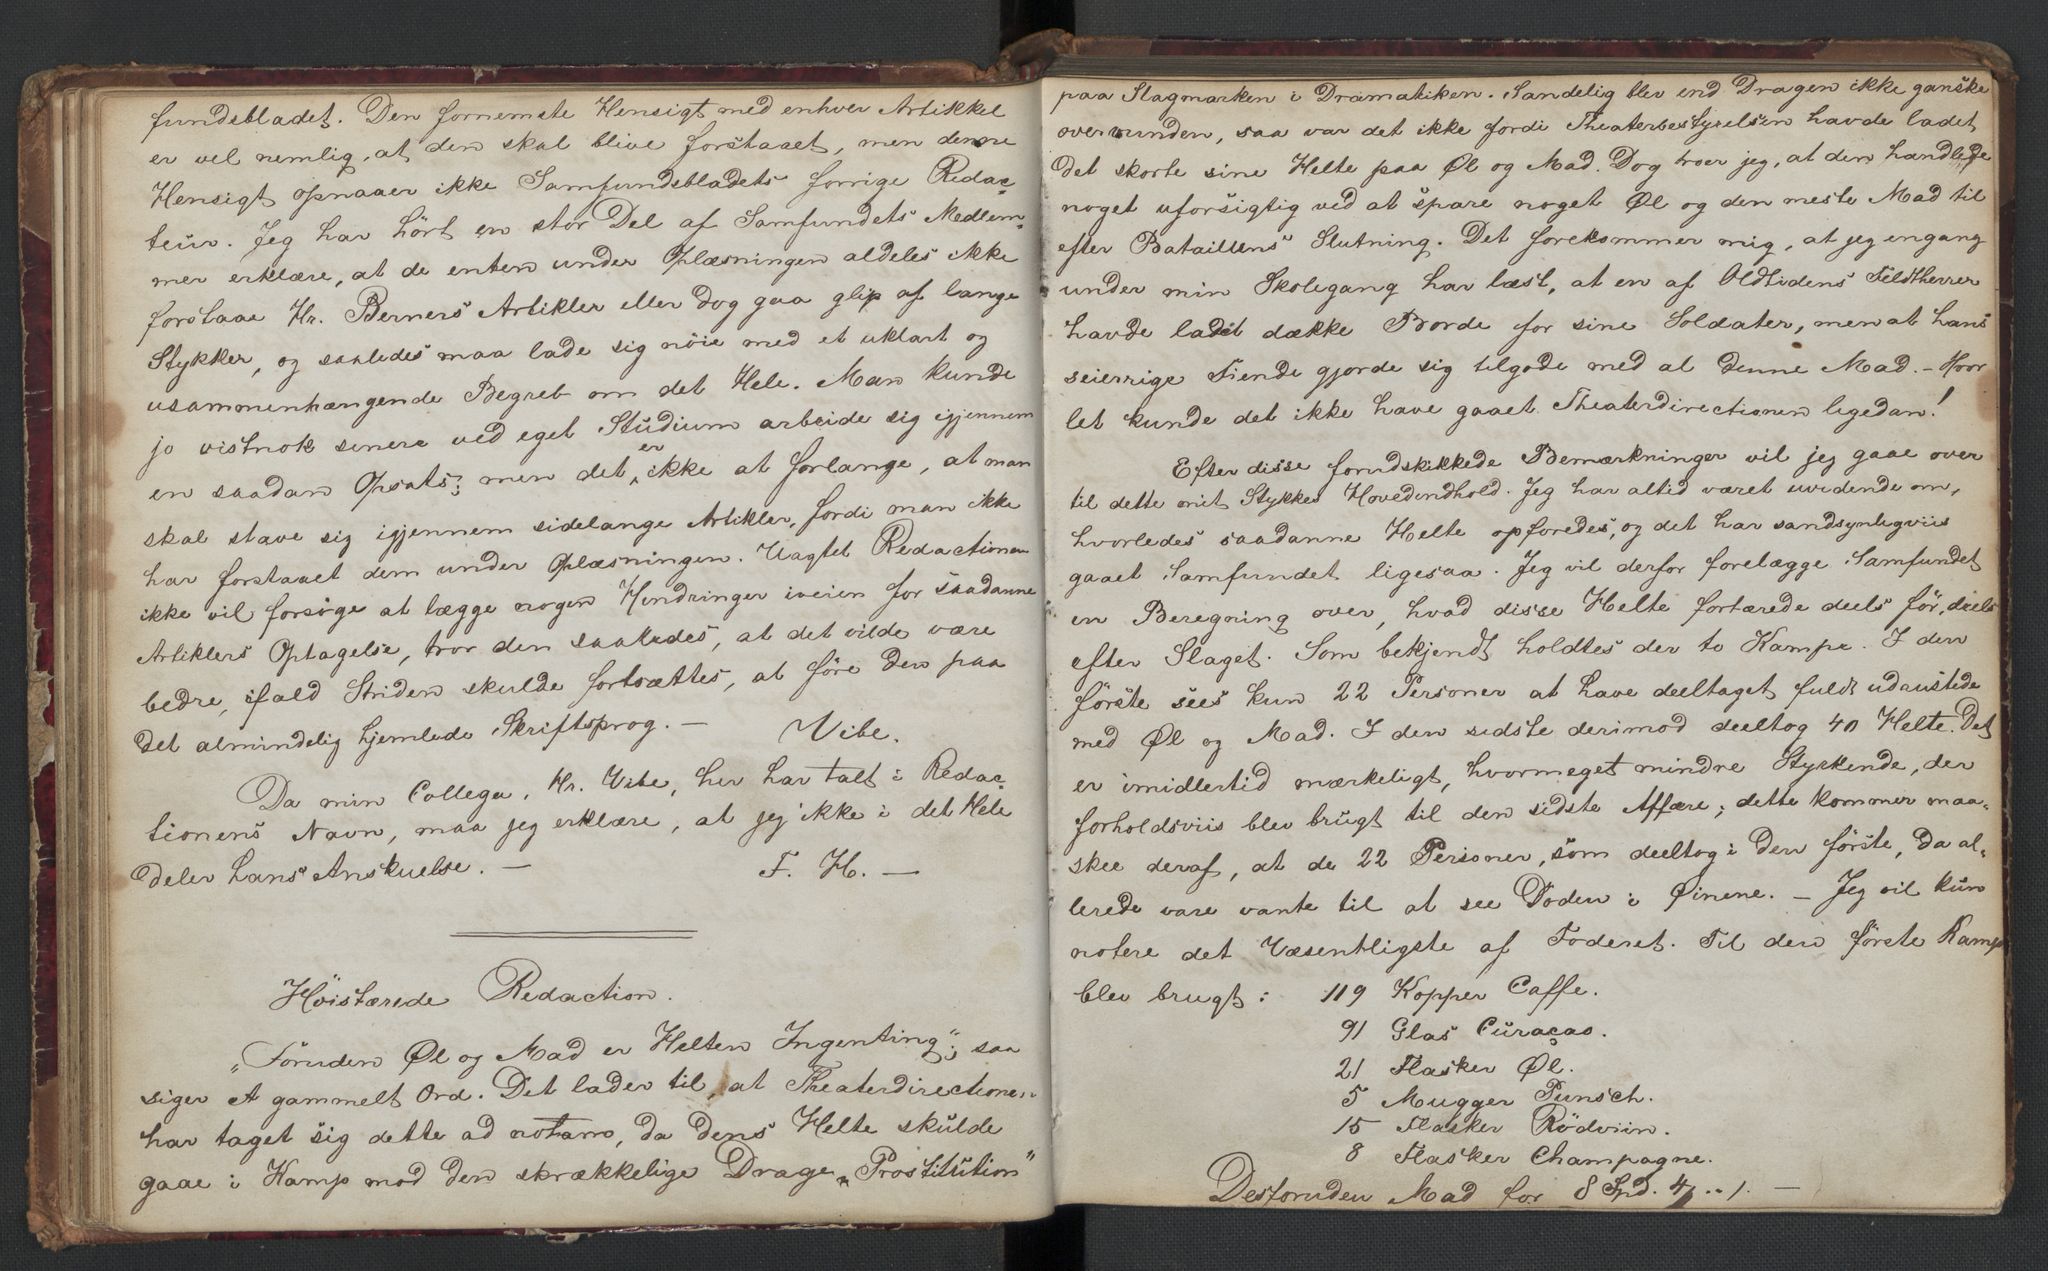 fundsbladet. Den fornemste Hensigt med enhver Artikkel
er vel nemlig, at den skal blive forstaaet, men denne
Hensigt opnaaer ikke Samfundsbladets forrige Redac-
teur. Jeg har hört en stor Del af Samfundets Medlem-
mer erklære, at de enten under Oplæsningen aldeles ikke
forstaae Hr. Berners Artikler eller dog gaa glip af lange
Stykker, og saaledes maa lade sig nöie med et uklart og
usammenhængende Begreb om det Hele. Man kunde
jo vistnok senere ved eget Studium arbeide sig igjennem
en saadan Opsats; men det er ikke at forlange, at man
skal stave sig igjennem sidelange Artikler, fordi man ikke
har forstaaet dem under Oplæsningen. Uagtet Redactionen
ikke vil forsöge at lægge nogen Hindringer iveien for saadanne
Artiklers Optagelse, tror den saaledes, at det vilde være
bedre, ifald Striden skulde fortsættes, at före den paa
det almindelig hjemlede Skriftsprog. — Vibe.
Da min Collega, Hr. Vibe, her har talt i Redac-
tionens Navn, maa jeg erklære, at jeg ikke i det Hele
deler hans Anskuelse. — F. H. —
Höistærede Redaction.
"Foruden Øl og Mad er Helten Ingenting"; saa
siger et gammelt Ord. Det lader til, at Theaterdirectionen
har taget sig dette ad notam, da dens Helte skulde
gaae i Kamp mod den skrækkelige Drage "Prostitution"
paa Slagmarken i Dramatiken. Sandelig blev end Dragen ikke ganske
overvunden, saa var det ikke fordi Theaterbestyrelsen havde ladet
det skorte sine Helte paa Øl og Mad. Dog troer jeg, at den handlede
noget uforsigtig ved at spare noget Øl og den meste Mad til
efter Bataillens Slutning. Det forekommer mig, at jeg engang
under min Skolegang har læst, at en af Oldtidens Feldtherrer
havde ladet dække Borde for sine Soldater, men at hans
seierrige Fiende gjorde sig tilgode med al denne Mad. – Hvor
let kunde det ikke have gaaet Theaterdirectionen ligedan!
Efter disse forudskikkede Bemærkninger vil jeg gaae over
til dette mit Stykkes Hovedindhold. Jeg har altid været uvidende om,
hvorledes saadanne Helte opforedes, og det har sandsynligviis
gaaet Samfundet ligesaa. Jeg vil derfor forelægge Samfundet
en Beregning over, hvad disse Helte fortærede deels för, deels
efter Slaget. Som bekjendt holdtes der to Kampe. I den
förste sees kun 22 Personer at have deeltaget fuldt udrustede
med Øl og Mad. I den sidste derimod deeltog 40 Helte. Det
er imidlertid mærkeligt, hvormeget mindre Styrkende, der
forholdsviis blev brugt til den sidste Affære; dette kommer maa-
skee deraf, at de 22 Personer, som deeltog i den förste, da al-
lerede vare vante til at see Döden i Øinene. – Jeg vil kun
notere det Væsentligste af Foderet. Til den förste Kamp
blev brugt: 119 Kopper Caffe.
91 Glas Curaçao.
21 Flasker Øl.
5 Mugger Punsch.
15 Flasker Rödviin.
8 Flasker Champagne.
Desforuden Mad for 8 Spd. 4 „ 1. —